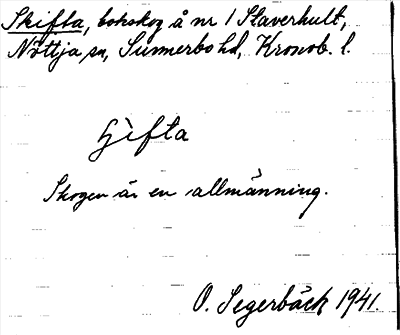 Skifta, bokskog å nr 1 Staverhult,
Nöttja sn, Sunnerbo hd, Kronob. l.
ʃifta
Skogen är en allmänning.
O. Segerbäck 1941.